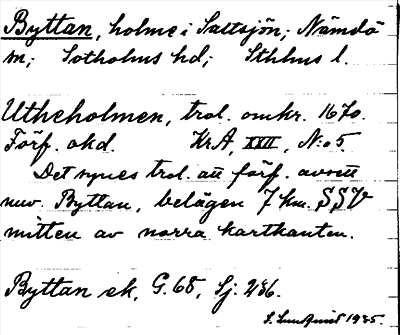 Byttan, holme i Saltsjön; Nämdö
sn; Sotholms hd; Sthlms l.
Utheholmen, trol. omkr. 1670.
Förf. okd. KrA, XXII, N:o 5
Det synes trol. att förf. avsett
nuv. Byttan, belägen 7 km. SSV
mitten av norra kartkanten.
Byttan ek, G. 68, Sj. 236.
S. Lundquist 1935.